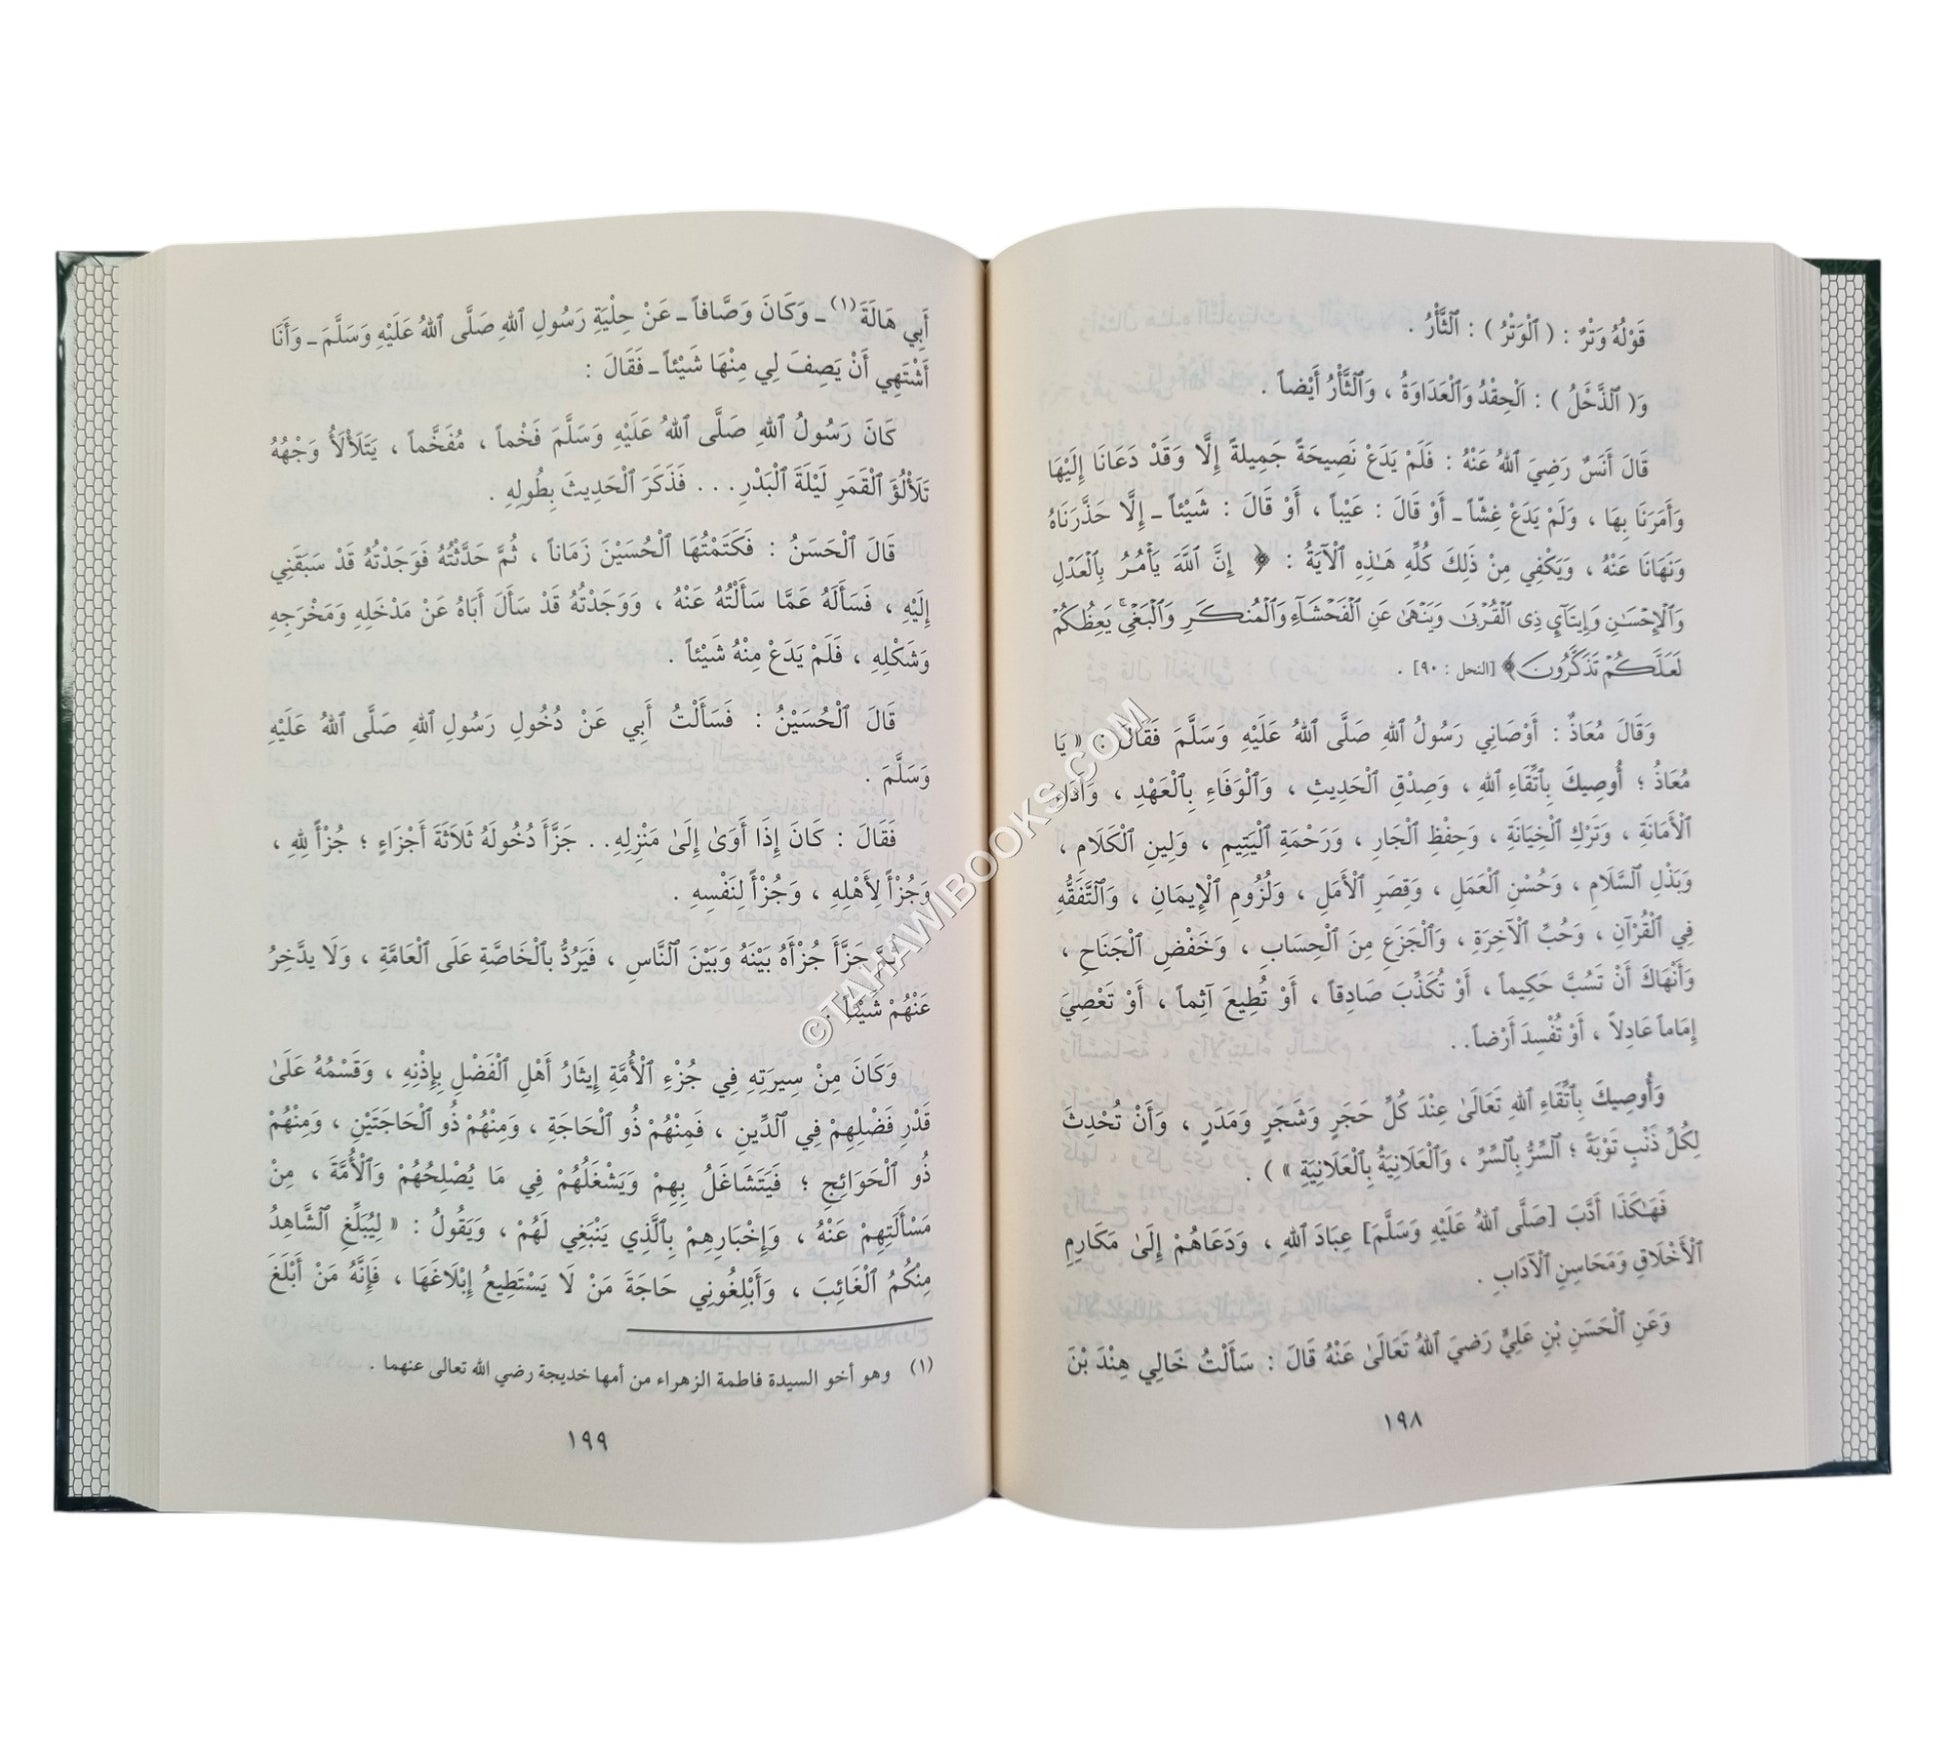 قَوْلُهُ وَتْرٌ : ( ٱلْوَتْرُ ) : ٱلثَّأْرُ .
وَ( ٱلذَّحْلُ ) : ٱلْحِقْدُ وَٱلْعَدَاوَةُ ، وَٱلثَّأْرُ أَيْضاً .
قَالَ أَنَسٌ رَضِيَ ٱللهُ عَنْهُ : فَلَمْ يَدَعْ نَصِيحَةً جَمِيلَةً إِلَّا وَقَدْ دَعَانَا إِلَيْهَا
وَأَمَرَنَا بِهَا ، وَلَمْ يَدَعْ غِشّاً ـ أَوْ قَالَ : عَيْباً ، أَوْ قَالَ : شَيْئاً ـ إِلَّا حَذَّرَنَاهُ
وَنَهَانَا عَنْهُ ، وَيَكْفِي مِنْ ذَلِكَ كُلِّهِ هَـٰذِهِ ٱلْآيَةُ : ﴿ إِنَّ ٱللَّهَ يَأْمُرُ بِٱلْعَدْلِ
وَٱلْإِحْسَـٰنِ وَإِيتَآيِٕ ذِى ٱلْقُرْبَىٰ وَيَنْهَىٰ عَنِ ٱلْفَحْشَآءِ وَٱلْمُنكَرِ وَٱلْبَغْىِ ۚ يَعِظُكُمْ
لَعَلَّكُمْ تَذَكَّرُونَ ﴾ [النحل : ٩٠] .
وَقَالَ مُعَاذٌ : أَوْصَانِي رَسُولُ ٱللهِ صَلَّى ٱللهُ عَلَيْهِ وَسَلَّمَ فَقَالَ : « يَا
مُعَاذُ ؛ أُوصِيكَ بِٱتِّقَاءِ ٱللهِ ، وَصِدْقِ ٱلْحَدِيثِ ، وَٱلْوَفَاءِ بِٱلْعَهْدِ ، وَأَدَاءِ
ٱلْأَمَانَةِ ، وَتَرْكِ ٱلْخِيَانَةِ ، وَحِفْظِ ٱلْجَارِ ، وَرَحْمَةِ ٱلْيَتِيمِ ، وَلِينِ ٱلْكَلَامِ ،
وَبَذْلِ ٱلسَّلَامِ ، وَحُسْنِ ٱلْعَمَلِ ، وَقِصَرِ ٱلْأَمَلِ ، وَلُزُومِ ٱلْإِيمَانِ ، وَٱلتَّفَقُّهِ
فِي ٱلْقُرْآنِ ، وَحُبِّ ٱلْآخِرَةِ ، وَٱلْجَزَعِ مِنَ ٱلْحِسَابِ ، وَخَفْضِ ٱلْجَنَاحِ ،
وَأَنْهَاكَ أَنْ تَسُبَّ حَكِيماً ، أَوْ تُكَذِّبَ صَادِقاً ، أَوْ تُطِيعَ آثِماً ، أَوْ تَعْصِيَ
إِمَاماً عَادِلاً ، أَوْ تُفْسِدَ أَرْضاً . .
وَأُوصِيكَ بِٱتِّقَاءِ ٱللهِ تَعَالَىٰ عِنْدَ كُلِّ حَجَرٍ وَشَجَرٍ وَمَدَرٍ ، وَأَنْ تُحْدِثَ
لِكُلِّ ذَنْبٍ تَوْبَةً ؛ ٱلسِّرُّ بِٱلسِّرِّ ، وَٱلْعَلَانِيَةُ بِٱلْعَلَانِيَةِ » ) .
فَهَـٰكَذَا أَدَّبَ [صَلَّى ٱللهُ عَلَيْهِ وَسَلَّمَ] عِبَادَ ٱللهِ ، وَدَعَاهُمْ إِلَىٰ مَكَارِمِ
ٱلْأَخْلَاقِ وَمَحَاسِنِ ٱلْآدَابِ .
وَعَنِ ٱلْحَسَنِ بْنِ عَلِيٍّ رَضِيَ ٱللهُ تَعَالَىٰ عَنْهُ قَالَ : سَأَلْتُ خَالِي هِنْدَ بْنَ
١٩٨
أَبِي هَالَةَ(١) ـ وَكَانَ وَصَّافاً ـ عَنْ حِلْيَةِ رَسُولِ ٱللهِ صَلَّى ٱللهُ عَلَيْهِ وَسَلَّمَ ـ وَأَنَا
أَشْتَهِي أَنْ يَصِفَ لِي مِنْهَا شَيْئاً ـ فَقَالَ :
كَانَ رَسُولُ ٱللهِ صَلَّى ٱللهُ عَلَيْهِ وَسَلَّمَ فَخْماً ، مُفَخَّماً ، يَتَلَأْلَأُ وَجْهُهُ
تَلَأْلُؤَ ٱلْقَمَرِ لَيْلَةَ ٱلْبَدْرِ . . . فَذَكَرَ ٱلْحَدِيثَ بِطُولِهِ .
قَالَ ٱلْحَسَنُ : فَكَتَمْتُهَا ٱلْحُسَيْنَ زَمَاناً ، ثُمَّ حَدَّثْتُهُ فَوَجَدْتُهُ قَدْ سَبَقَنِي
إِلَيْهِ ، فَسَأَلَهُ عَمَّا سَأَلْتُهُ عَنْهُ ، وَوَجَدْتُهُ قَدْ سَأَلَ أَبَاهُ عَنْ مَدْخَلِهِ وَمَخْرَجِهِ
وَشَكْلِهِ ، فَلَمْ يَدَعْ مِنْهُ شَيْئاً .
قَالَ ٱلْحُسَيْنُ : فَسَأَلْتُ أَبِي عَنْ دُخُولِ رَسُولِ ٱللهِ صَلَّى ٱللهُ عَلَيْهِ
وَسَلَّمَ .
فَقَالَ : كَانَ إِذَا أَوَىٰ إِلَىٰ مَنْزِلِهِ . . جَزَّأَ دُخُولَهُ ثَلَاثَةَ أَجْزَاءٍ ؛ جُزْأً لِلّهِ ،
وَجُزْأً لِأَهْلِهِ ، وَجُزْأً لِنَفْسِهِ .
ثُمَّ جَزَّأَ جُزْأَهُ بَيْنَهُ وَبَيْنَ ٱلنَّاسِ ، فَيَرُدُّ بِٱلْخَاصَّةِ عَلَى ٱلْعَامَّةِ ، وَلَا يدَّخِرُ
عَنْهُمْ شَيْئاً .
وَكَانَ مِنْ سِيرَتِهِ فِي جُزْءِ ٱلْأُمَّةِ إِيثَارُ أَهْلِ ٱلْفَضْلِ بِإِذْنِهِ ، وَقَسْمُهُ عَلَىٰ
قَدْرِ فَضْلِهِمْ فِي ٱلدِّينِ ، فَمِنْهُمْ ذُو ٱلْحَاجَةِ ، وَمِنْهُمْ ذُو ٱلْحَاجَتَيْنِ ، وَمِنْهُمْ
ذُو ٱلْحَوَائِجِ ؛ فَيَتَشَاغَلُ بِهِمْ وَيَشْغَلُهُمْ فِي مَا يُصْلِحُهُمْ وَٱلْأُمَّةَ ، مِنْ
مَسْأَلَتِهِمْ عَنْهُ ، وَإِخْبَارِهِمْ بِٱلَّذِي يَنْبَغِي لَهُمْ ، وَيَقُولُ : « لِيُبَلِّغِ ٱلشَّاهِدُ
مِنْكُمُ ٱلْغَائِبَ ، وَأَبْلِغُونِي حَاجَةَ مَنْ لَا يَسْتَطِيعُ إِبْلَاغَهَا ، فَإِنَّهُ مَنْ أَبْلَغَ
(١) وهو أخو السيدة فاطمة الزهراء من أمها خديجة رضي الله تعالى عنهما .
١٩٩
©TAHAWIBOOKS.COM